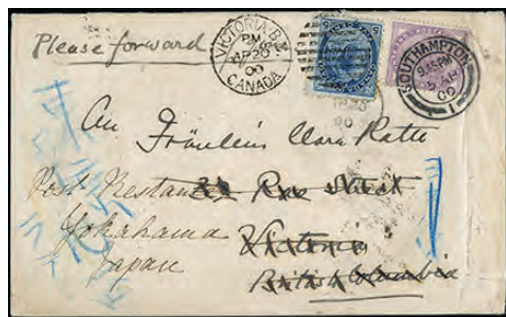 Please forward
VICTORIA B.C.
PM
AP 20
00
CANADA
SOUTHAMPTON
9.45PM
AP
00
1
An Fräulein Clara
Post Restante
Street
Yokahama Victoria
Japan British Columbia